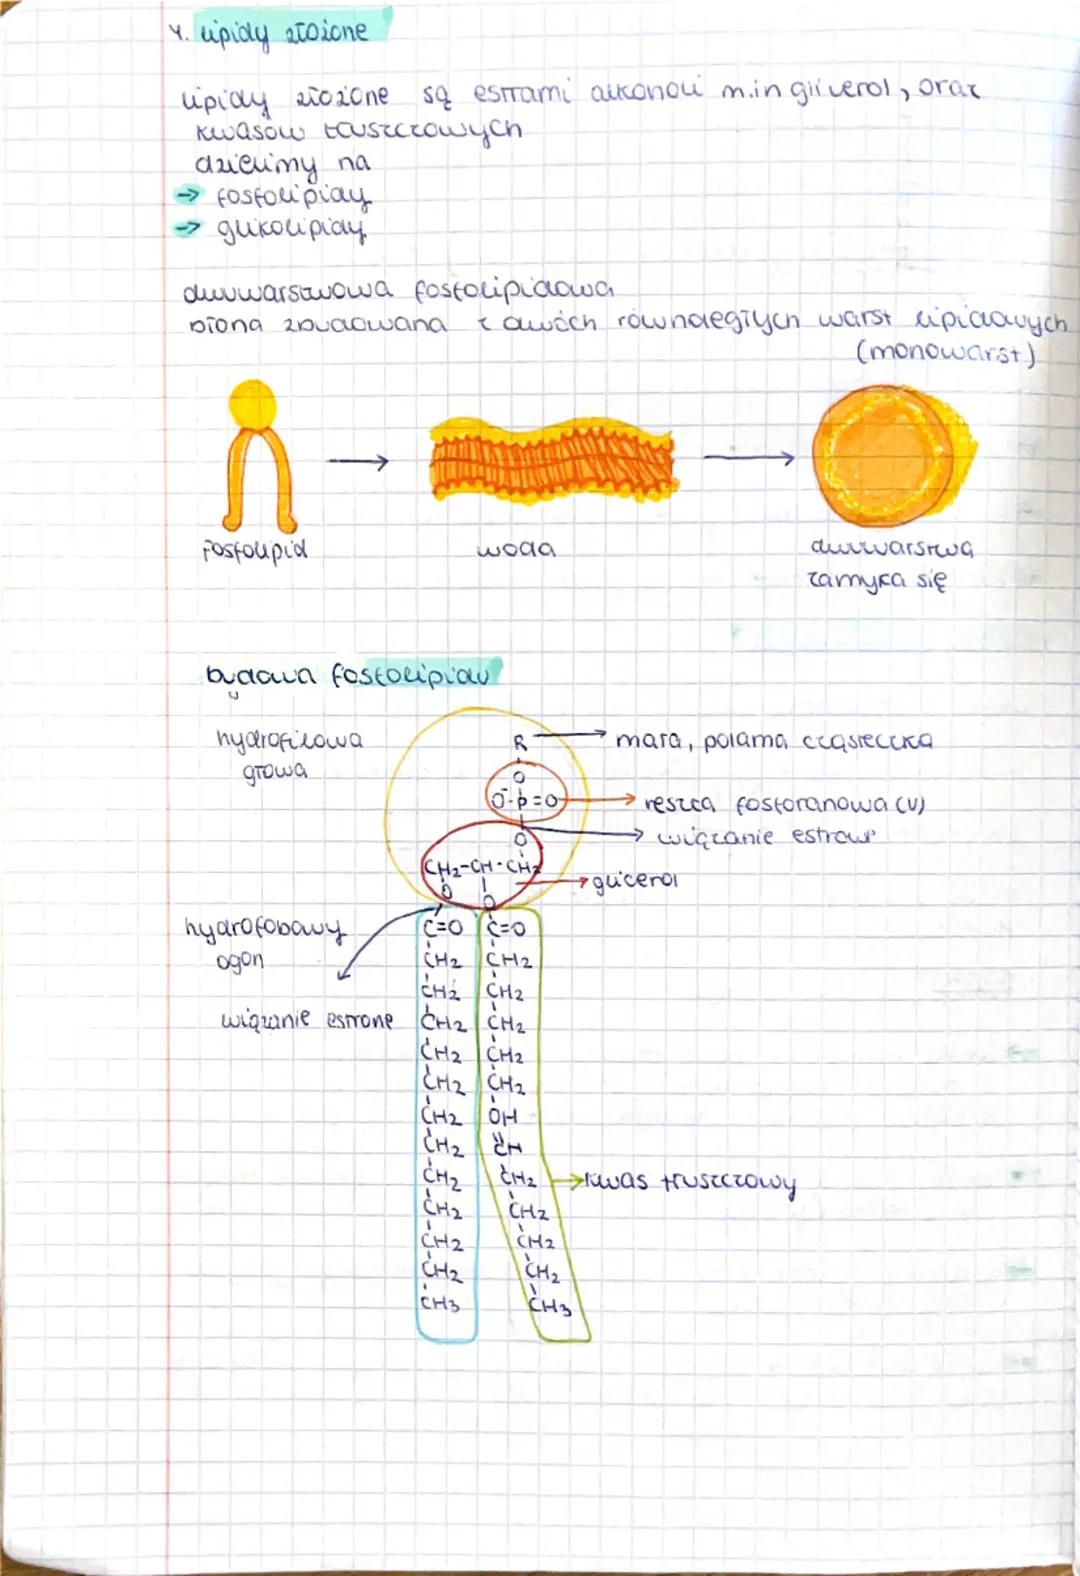 4. lipidy złożone
lipidy złożone są estrami alkoholi m.in gliverol, oraz
kwasów tłuszczowych
dzielimy na
→ fosfolipidy
→ glikolipidy
dwuwarstwowa fosfolipidowa
błona zbudowana z dwóch równoległych warst lipidowych
(monowarst)
fosfolipid
woda
dwuwarstwa
zamyka się
budowa fosfolipidu
hydrofilowa
głowa
R
mała, polarna cząsteczka
O
O⁻-P=O
reszta fosforanowa (V)
O
wiązanie estrowe
CH2-CH-CH2
glicerol
O O
hydrofobowy
ogon
C=O C=O
CH2 CH2
CH2 CH2
wiązanie estrone
CH2 CH2
CH2 CH2
CH2 CH2
CH2 OH
CH2 CH
CH2 CH2
kwas tłuszczowy
CH2 CH2
CH2 CH2
CH2 CH2
CH3 CH3